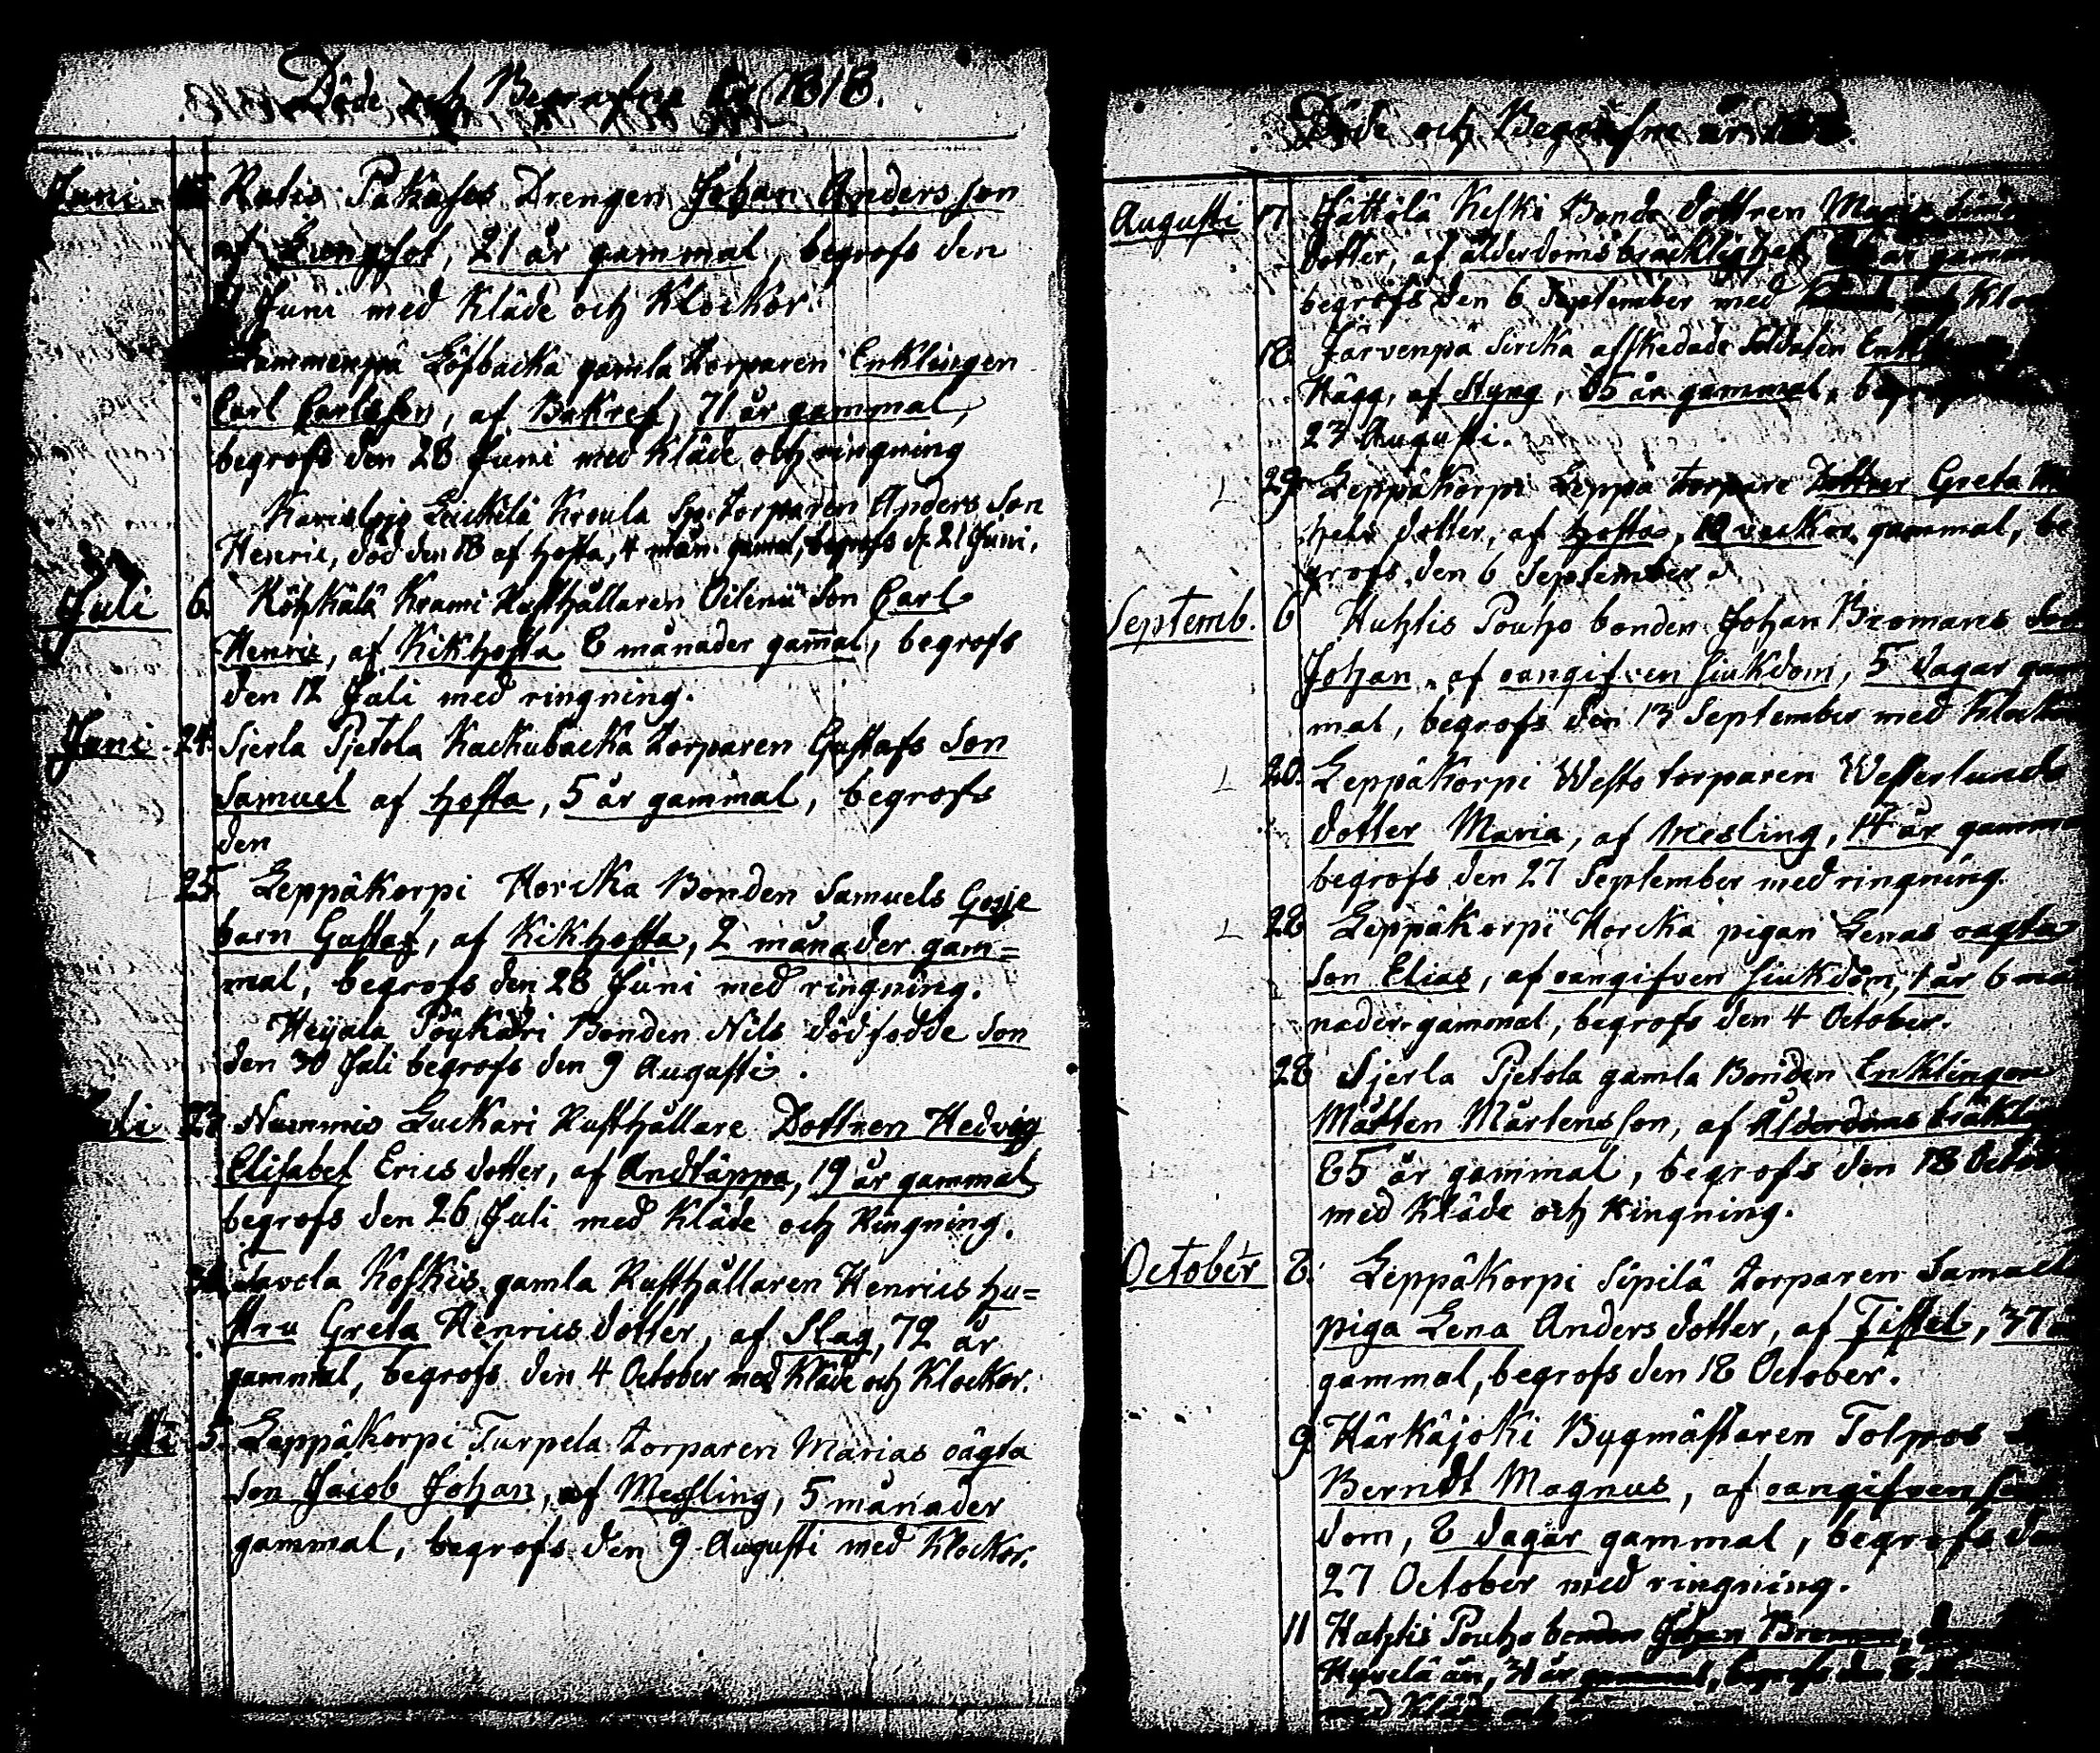 Döde och Begrafne år 1818.
Juni 15 Ratis Pakases Drengen Johan Andersson
af Lungsot, 21 år gammal, begrofs den
Juni med Kläde och Klockor.
Löfbacka gamla torparen Enklingen
Carl Carlsson, af Bakref, 71 år gammal,
begrofs den 28 Juni med Kläde och ringning
Karislojo Leickilä Kroula Sp. torparen Anders Son
Henric, död den 18 af hosta, 4 mån. gamal, begrofs d. 21 Juni.
Juli 6. Köhkälä Krami Rusthållaren Oilenii Son Carl
Henric, af Kikhosta 8 månader gamal, begrofs
den 12 Juli med ringning.
Juni 24. Sjerla Pjetola Kackubacka torparen Gustafs Son
Samuel af hosta, 5 år gammal, begrofs
den
25. Leppäkorpi Horcka Bonden Samuels Gosse
barn Gustaf, af Kikhosta, 2 månader gam=
mal, begrofs den 28 Juni med ringning.
Heijala Pöykäri Bonden Nils dödfödde Son
den 30 Juli begrofs den 9 Augusti.
23 Nummis Luckari Rusthållare Dottren Hedvig
Elisabet Erics dotter, af Andtäppa, 19 år gammal,
begrofs den 26 Juli med Kläde och Ringning.
Koskis gamla Rusthållaren Henrics hu=
stru Greta Henrics dotter, af Slag, 72 år
gammal, begrofs den 4 October med Kläde och Klockor.
5. Leppäkorpi Turpela torparen Marias oägta
Son Jacob Johan, af Messling, 5 månader
gammal, begrofs den 9 Augusti med Klockor.
Döde och Begrafne år
Augusti 17. Jättölä Keski Bonde dottren
dotter, af ålderdoms bräcklighet, år gammal
begrofs den 6 September med
18. Järvenpä Sircka afskedade Soldaten
Hägg, af Styng, 65 år gammal,
23 Augusti.
29. Leppäkorpi Leppä torpare Dotter Greta
hels dotter, af hosta, 10 veckor gammal, be
grofs den 6 September.
Septemb. 6 Huhtis Pouho bonden Johan Bromans Son
Johan, af oangifven siukdom, 5 dagar gam
mal, begrofs den 13 September med Klockor
20. Leppäkorpi Wests torparen Westerlunds
dotter Maria, af Mesling, 14 år gammal
begrofs den 27 September med ringning.
28 Leppäkorpi Horcka pigan Lenas oagta
Son Elias, af oangifven siukdom, 1 år 6 må
nader gammal, begrofs den 4 October.
28 Sjerla Pjetola gamla Bonden Enklingen
Måtten Mårtensson, af Ålderdoms bräkli
85 år gammal, begrofs den 18 Octob
med Kläde och Ringning.
October 8. Leppäkorpi Sipilä torparen Samuel
piga Lena Anders dotter, af Fistel, 37
gammal, begrofs den 18 October.
9 Härkäjoki Bygmästaren Tolpos
Berndt Magnus, af oangifven
dom, 8 dagar gammal, begrofs
27 October med ringning.
11 Huhtis Pouho bonden Johan Broman,